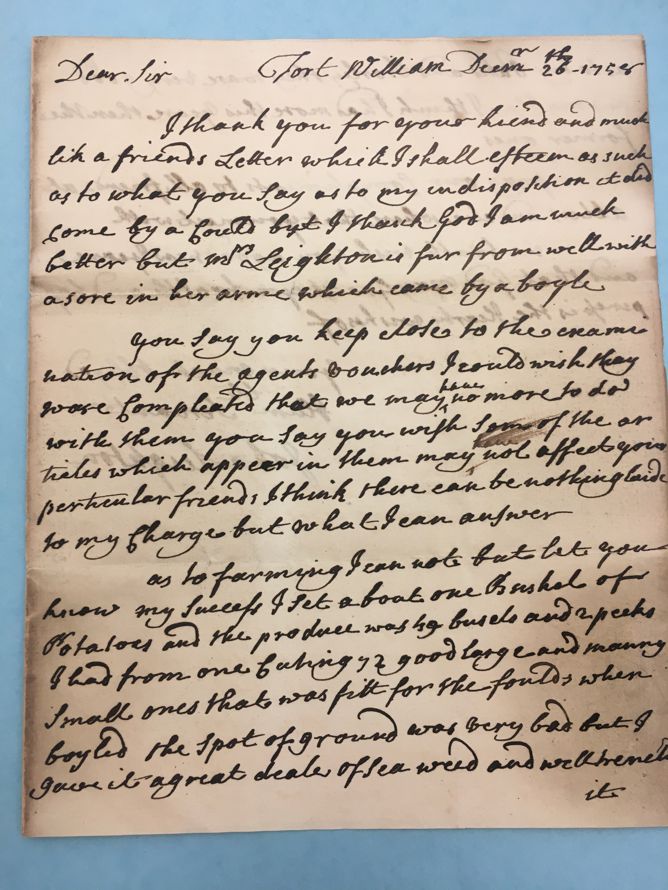 Dear Sir Fort William Decmr 26th 1758
I thank you for your kiend and much
lik a friends Letter which I shall esteem as such
as to what you Say as to my indisposition it did
Come by a Could byt I thank God I am much
better but Mrs Leighton is fur from well with
a sore in her arme which came by a boyle
you Say you keep close to the exami
nation of the agents vouchers I could wish thay
ware Compleated that we may have no more to do
with them you Say you wish Som of the ar
ticles which appear in them may not affect your
perticular friends I think there can be nothing laide
to my Charge but what I can answer
as to farming I can not but let you
know my Success I Set about one Bushel of
Potatoes and the produce was 49 busels and 2 peeks
I had from one Cuting 72 good large and manny
Small ones that was fitt for the foulds when
boyled the Spot of ground was very bad but I
gave it a great deale of Sea weed and well
it